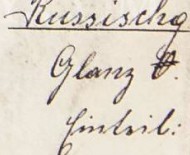 Russische
Glanz
Einteil: